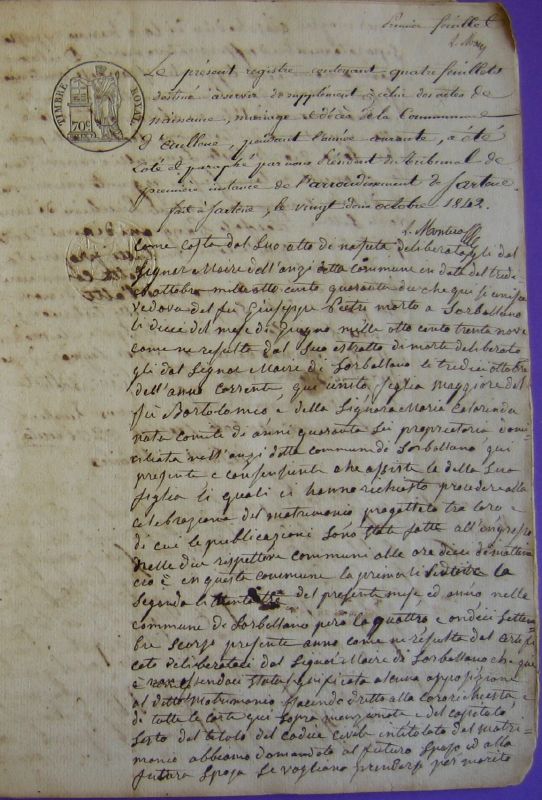 Premier feuillet
TIMBRE ROYAL
70c
Le présent registre contenant quatre feuillets
destiné à servir de supplément à celui des actes de
naissance, mariage et décès de la Commune
d'Aullene, pendant l'année courante, a été
coté et paraphé par nous Président du tribunal de
première instance de l'arrondissement de Sartene.
fait à Sartene, le vingt deux octobre 1842.
Come costa dal suo atto di nascita deliberatogli dal
Signor Maire dell'anzi detta commune in data del tredici
ottobre mille otto cento quaranta due che qui si unisce
vedova del fu Giuseppe Pietri morto a Sorbollano
li dieci del mese di Giugno mille otto cento trenta nove
come ne resulta dal suo estratto di morte deliberato
gli dal Signor Maire di Sorbollano li tredici ottobre
dell'anno corrente, qui unito, figlia maggiore del
fu Bortolomeo e della Signora Maria
nata comiti di anni quaranta sei proprietaria domi
ciliata nell'anzi detta commune di Sorbollano, qui
presente e consensente che assiste la detta sua
figlia li quali ci hanno richiesto procedere alla
celebrazione del matrimonio progettato tra loro e
di cui le publicazioni sono state fatte all'ingresso
nelle due respettive communi alle ore dieci di mattina
ciò è in questa commune la prima li sedici la
seconda li del presente mese, ed anno nella
commune di Sorbollano però la quattro e ondici settem
bre scorso presente anno come ne resulta dal certifi
cato deliberatoci dal Signor Maire di Sorbollano che qui
e non essendoci stata significata alcuna opposizione
al detto matrimonio facendo dritto alla loro richiesta e
di tutte le carte qui sopra menzionate e del capitolo
sesto del titolo del codice civile intitolato del matri
monio abbiamo domandato al futuro sposo ed alla
futura sposa se vogliano prendersi per marito